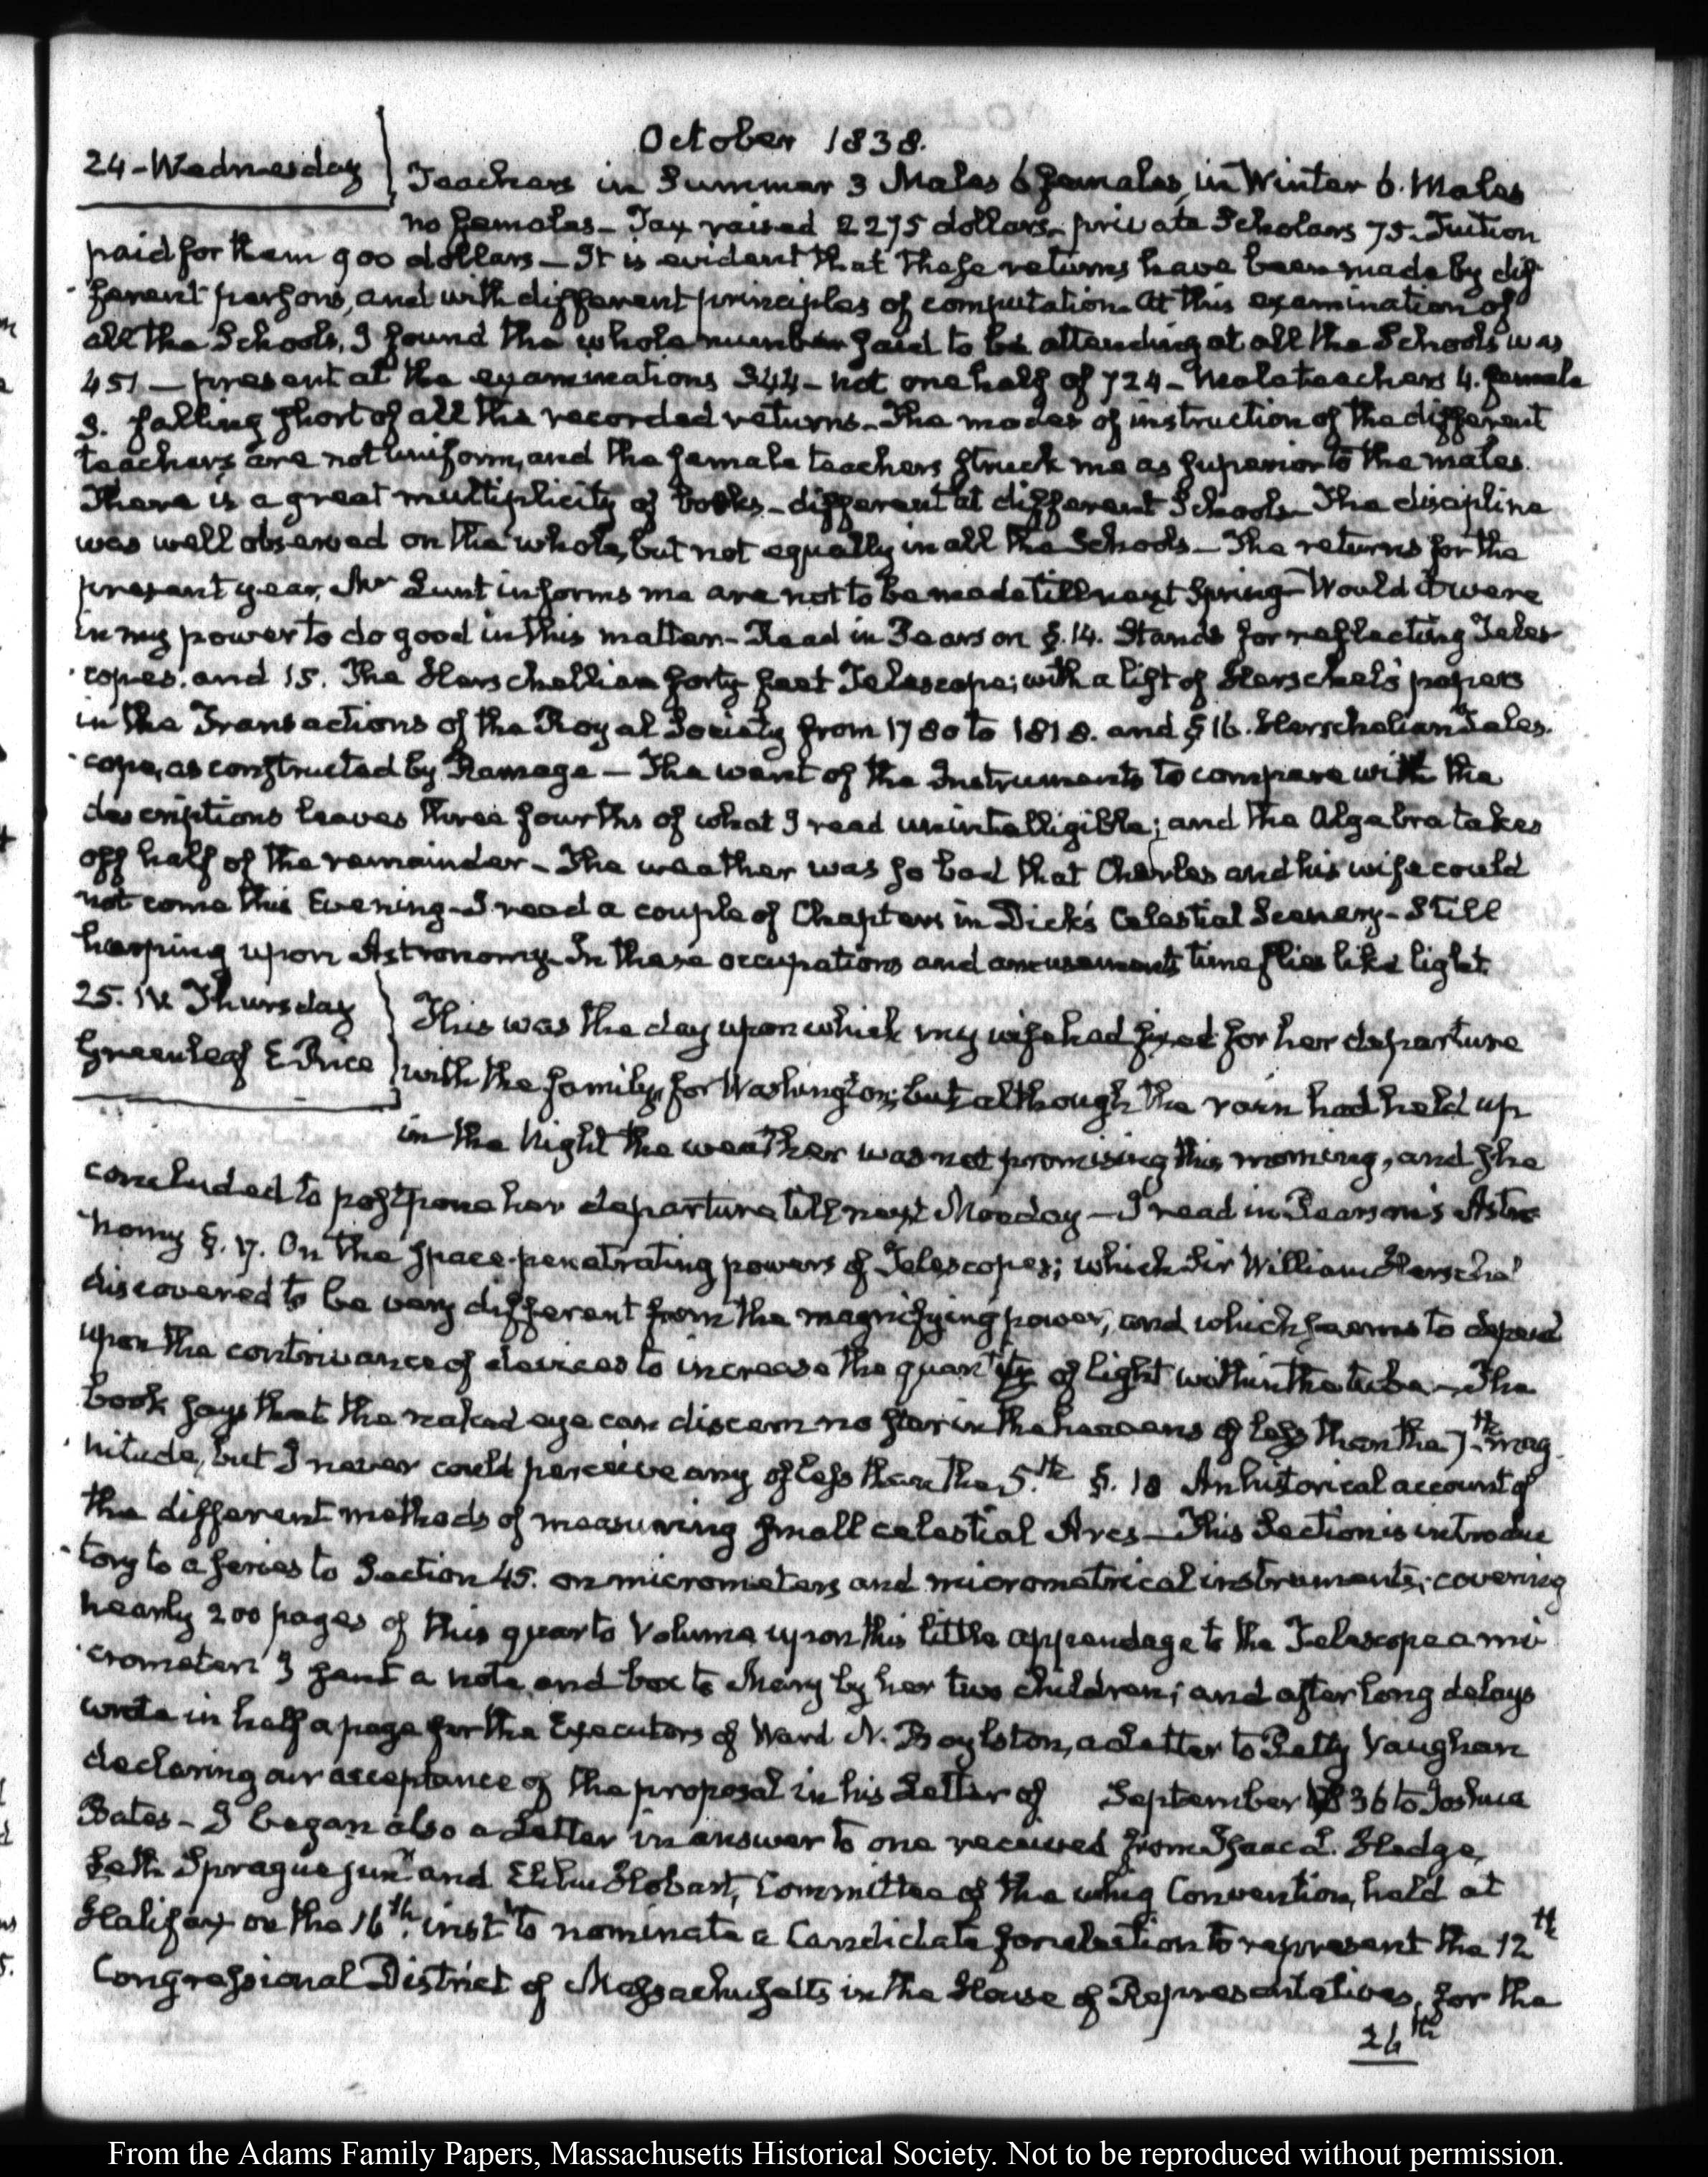 October 1838.
24-Wednesday
Teachers in Summer 3 Males 6 females, in Winter 6. Males
no females - Tax raised 2275 dollars - private Scholars 75. Tuition
paid for them 900 dollars - It is evident that these returns have been made by dif
ferent persons, and with different principles of computation. At this examination of
all the Schools, I found the whole number said to be attending at all the Schools was
451 - present at the examinations 344 - not one half of 724 - Male teachers 4. female
3. falling short of all the recorded returns - The modes of instruction of the different
teachers are not uniform, and the female teachers struck me as superior to the males.
There is a great multiplicity of books - different at different Schools - The discipline
was well observed on the whole, but not equally in all the Schools - The returns for the
present year, Mr Lunt informs me are not to be made till next Spring - Would it were
in my power to do good in this matter - Read in Pearson §. 14. Stands for reflecting Teles
copes. and 15. The Herschellian forty feet Telescope; with a list of Herschel's papers
in the Transactions of the Royal Society from 1780 to 1818. and § 16. Herschelian Teles.
cope, as constructed by Ramage - The want of the Instruments to compare with the
descriptions leaves three fourths of what I read unintelligible; and the Algebra takes
off half of the remainder - The weather was so bad that Charles and his wife could
not come this Evening - I read a couple of Chapters in Dick's Celestial Scenery - Still
harping upon Astronomy - In these occupations and amusements time flies like light.
25. IV. Thursday
Greenleaf E Price
This was the day upon which my wife had fixed for her departure
with the family, for Washington; but although the rain had held up
in the Night the weather was not promising this morning, and she
concluded to postpone her departure till next Monday - I read in Pearson's Astro
nomy §. 17. On the space-penetrating powers of Telescopes; which Sir William Herschel
discovered to be very different from the magnifying power, and which seems to depend
upon the contrivance of devices to increase the quantity of light within the tube - The
book says that the naked eye can discern no star in the heavens of less than the 7th mag
nitude, but I never could perceive any of less than the 5.th §. 18 An historical account of
the different methods of measuring small celestial Arcs - This Section is introduc
tory to a series to Section 45. on micrometers and micrometrical instruments; covering
nearly 200 pages of this quarto Volume upon this little appendage to the Telescope a mi
crometer. I sent a note and box to Mary by her two children; and after long delays
wrote in half a page for the Executors of Ward N. Boylston, a Letter to Petty Vaughan
declaring our acceptance of the proposal in his Letter of September 1836 to Joshua
Bates - I began also a Letter in answer to one received from Isaac L. Hedge,
Seth Sprague junr and Elihu Hobart, Committee of the whig Convention, held at
Halifax on the 16th. inst. to nominate a Candidate for election to represent the 12th
Congressional District of Massachusetts in the House of Representatives, for the
26th
From the Adams Family Papers, Massachusetts Historical Society. Not to be reproduced without permission.